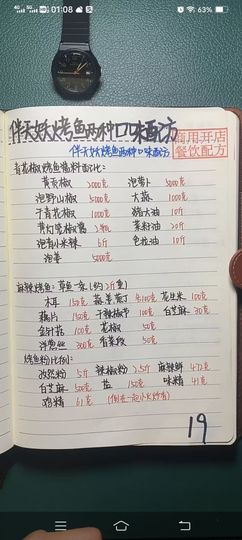 01:08
63%
伴天妖烤鱼两种口味配方
伴天妖烤鱼两种口味配方
商用开店
餐饮配方
青花椒烤鱼酱料配比:
黄贡椒 2000克 泡萝卜 5000克
泡野山椒 5000克 大蒜 1000克
干青花椒 1000克 猪大油 10斤
黄灯笼椒酱 2瓶 菜籽油 20斤
泡青小米辣 6斤 色拉油 10斤
泡姜 5000克
麻辣烤鱼: 草鱼一条(约2斤重)
木耳 150克 蔬 100克 花生米 100克
藕片 150克 干辣椒节 100克 白芝麻 30克
金针菇 100克 花椒 50克
洋葱丝 300克 香菜段 50克
烤鱼粉比例:
孜然粉 5斤 辣椒粉 2.5斤 麻辣鲜 472克
白芝麻 500克 盐 150克 味精 41克
鸡精 61克
19